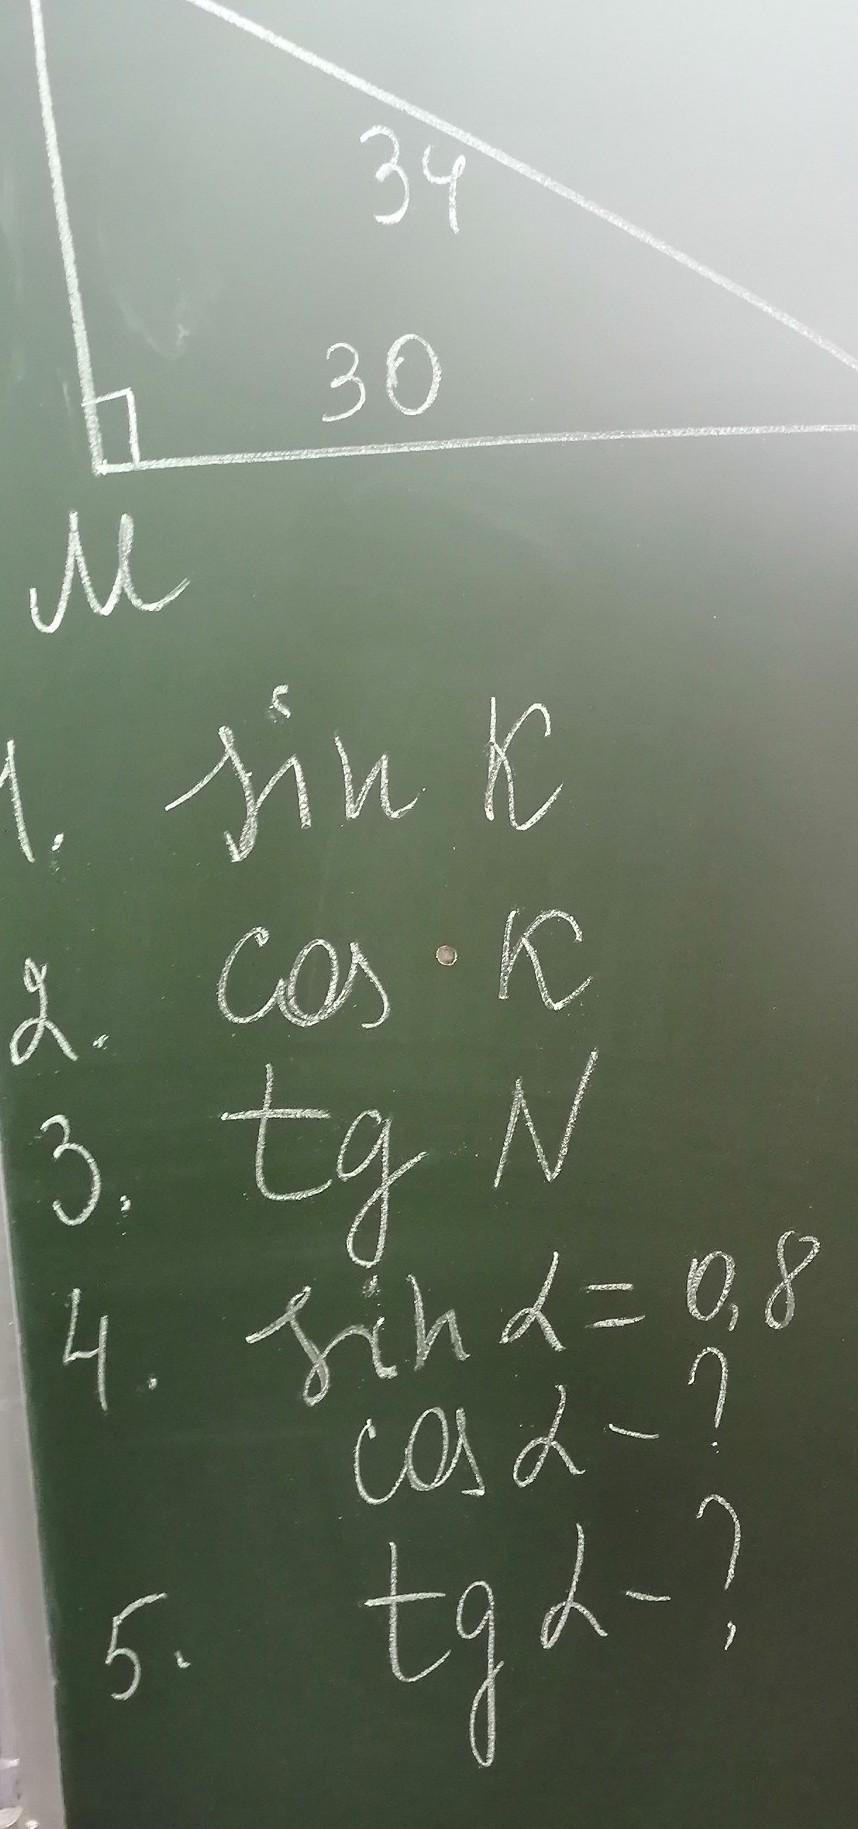 34
30
M
1. sin K
2. cos K
3. tg N
4. sin α = 0,8
cos α - ?
5. tg α - ?